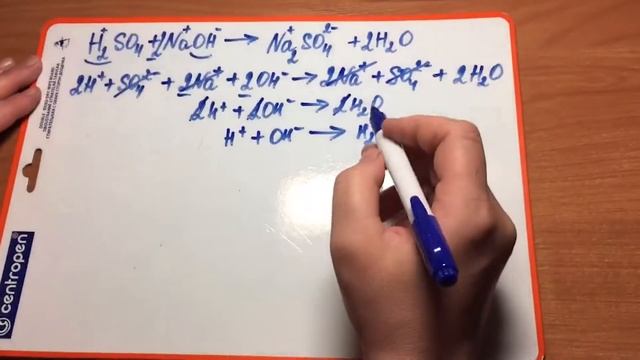 H₂⁺SO₄ + 2Na⁺OH⁻ → Na₂⁺SO₄²⁻ + 2H₂O
2H⁺ + SO₄²⁻ + 2Na⁺ + 2OH⁻ → 2Na⁺ + SO₄²⁻ + 2H₂O
2H⁺ + 2OH⁻ → 2H₂O
H⁺ + OH⁻ → H₂
centropen